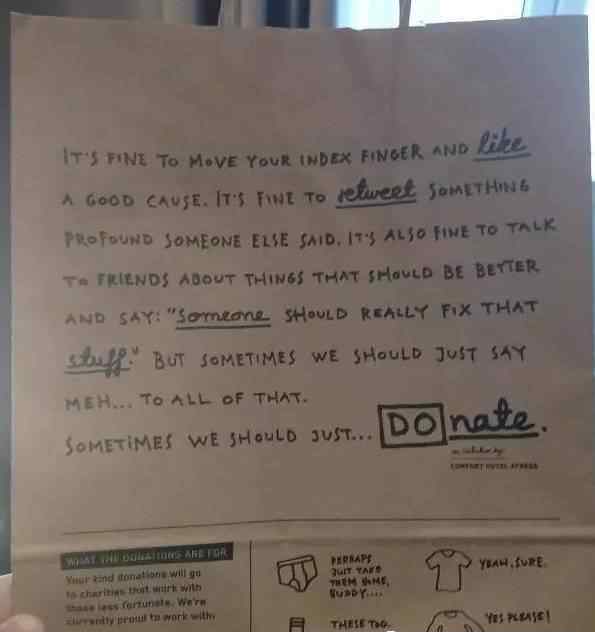 IT'S FINE TO MOVE YOUR INDEX FINGER AND like
A GOOD CAUSE. IT'S FINE TO retweet SOMETHING
PROFOUND SOMEONE ELSE SAID. IT'S ALSO FINE TO TALK
TO FRIENDS ABOUT THINGS THAT SHOULD BE BETTER
AND SAY: "Someone SHOULD REALLY FIX THAT
stuff." BUT SOMETIMES WE SHOULD JUST SAY
MEH... TO ALL OF THAT.
SOMETIMES WE SHOULD JUST... DOnate.
COMFORT HOTEL XPRESS
WHAT THE DONATIONS ARE FOR
Your kind donations will go
to charities that work with
those less fortunate. We're
currently proud to work with:
PERHAPS
JUST TAKE
THEM HOME,
BUDDY....
YEAH, SURE.
THESE TOO.
YES PLEASE!